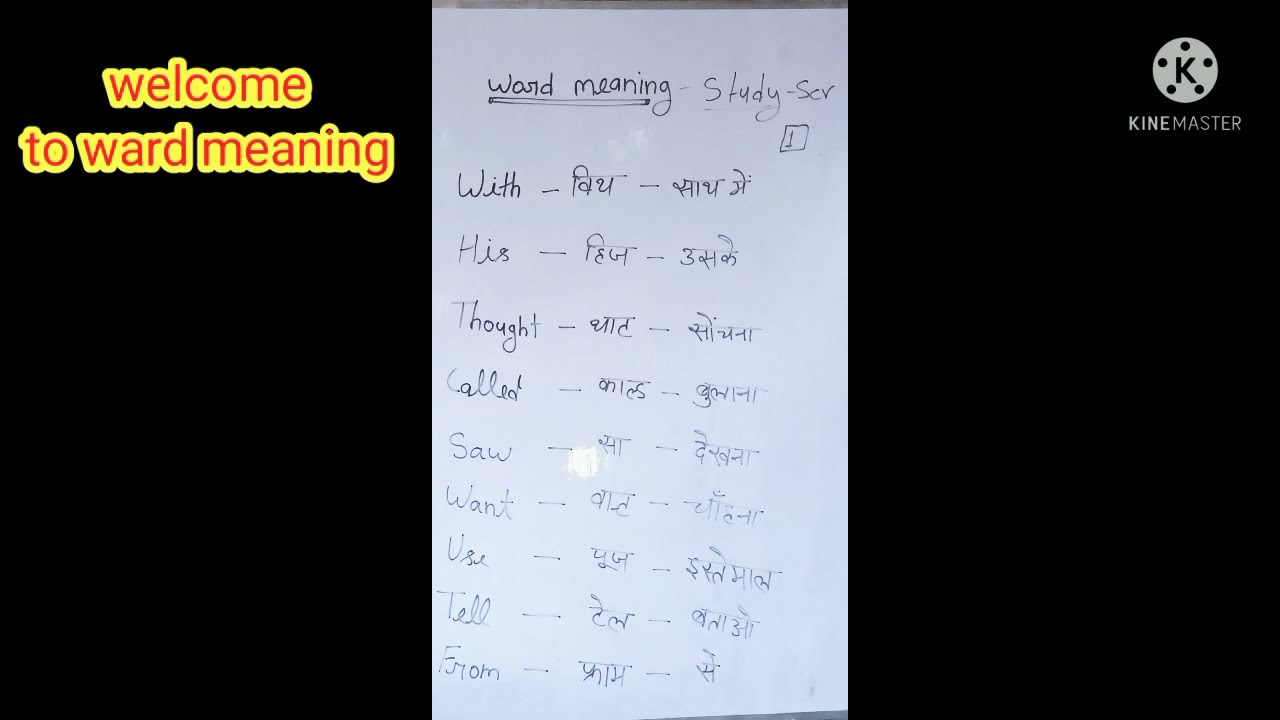 welcome
to ward meaning
K
KINEMASTER
Word meaning - Study-Scr
1
With - विथ - साथ में
His - हिज - उसके
Thought - थाट - सोंचना
Called - काल्ड - बुलाना
Saw - सा - देखना
Want - वान्ट - चाँहना
Use - यूज - इस्तेमाल
Tell - टेल - बताओ
From - फ्राम - से